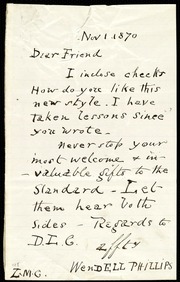 Nov 1 1870
Dear Friend
I inclose checks
How do you like this
new style. I have
taken lessons since
you wrote-
never stop your
most welcome & in-
-valuable gifts to the
Standard - Let
them hear both
sides - Regards to
D.L.C. affly
WENDELL PHILLIPS
E.M.G.